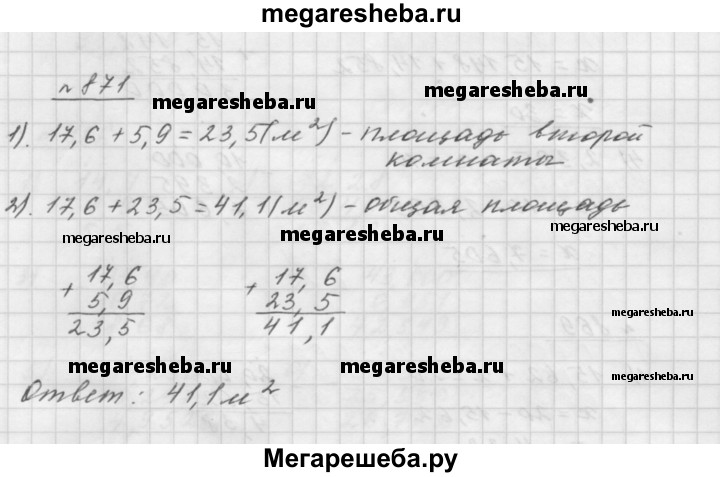 megaresheba.ru
№ 871
megaresheba.ru megaresheba.ru
1). 17,6 + 5,9 = 23,5 (м²) - площадь второй
комнаты
2). 17,6 + 23,5 = 41,1 (м²) - общая площадь
megaresheba.ru megaresheba.ru megaresheba.ru
+ 17,6 + 17,6
5,9 23,5
23,5 41,1
megaresheba.ru
megaresheba.ru megaresheba.ru megaresheba.ru
Ответ: 41,1 м²
Мегарешеба.ру